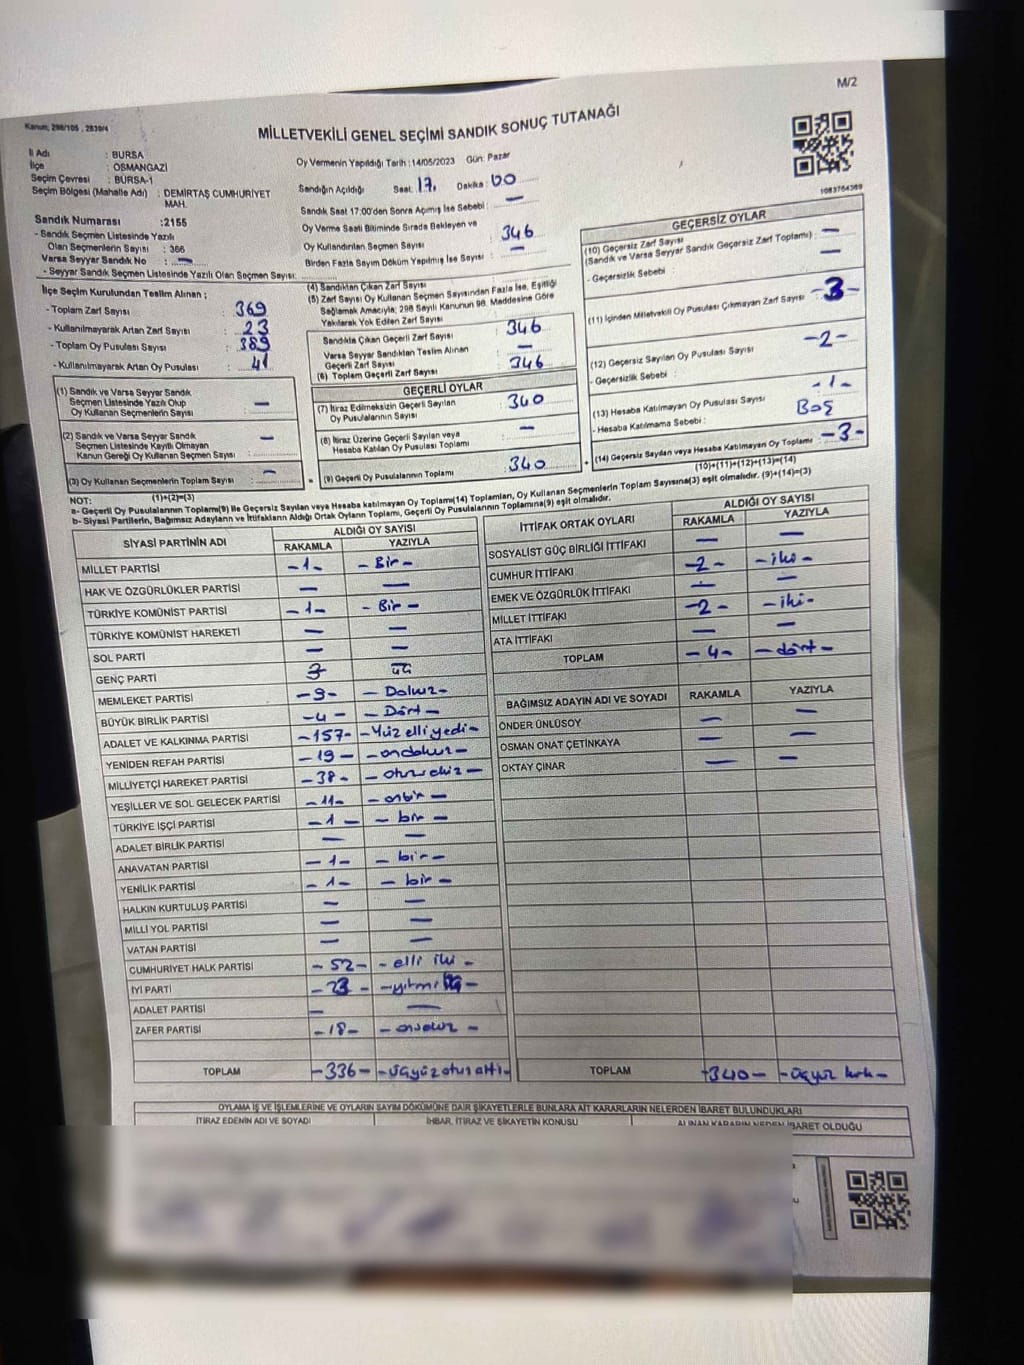 M/2
Kanun; 298/105 , 2839/4
MİLLETVEKİLİ GENEL SEÇİMİ SANDIK SONUÇ TUTANAĞI
İl Adı : BURSA
İlçe : OSMANGAZİ
Seçim Çevresi : BURSA-1
Seçim Bölgesi (Mahalle Adı) : DEMİRTAŞ CUMHURİYET MAH.
Oy Vermenin Yapıldığı Tarih : 14/05/2023 Gün: Pazar
Sandığın Açıldığı Saat: 17. Dakika: 00
Sandık Saat 17:00'den Sonra Açılmış İse Sebebi : —
1083764369
Sandık Numarası : 2155
- Sandık Seçmen Listesinde Yazılı
Olan Seçmenlerin Sayısı : 366
Varsa Seyyar Sandık No : —
- Seyyar Sandık Seçmen Listesinde Yazılı Olan Seçmen Sayısı:
Oy Verme Saati Bitiminde Sırada Bekleyen ve
Oy Kullandırılan Seçmen Sayısı : 346
Birden Fazla Sayım Döküm Yapılmış İse Sayısı : —
İlçe Seçim Kurulundan Teslim Alınan ;
- Toplam Zarf Sayısı : 369
- Kullanılmayarak Artan Zarf Sayısı : 23
- Toplam Oy Pusulası Sayısı : 389
- Kullanılmayarak Artan Oy Pusulası : 41
(1) Sandık ve Varsa Seyyar Sandık
Seçmen Listesinde Yazılı Olup
Oy Kullanan Seçmenlerin Sayısı : —
(2) Sandık ve Varsa Seyyar Sandık
Seçmen Listesinde Kayıtlı Olmayan
Kanun Gereği Oy Kullanan Seçmen Sayısı : —
(3) Oy Kullanan Seçmenlerin Toplam Sayısı : —
(1)+(2)=(3)
(4) Sandıktan Çıkan Zarf Sayısı
(5) Zarf Sayısı Oy Kullanan Seçmen Sayısından Fazla İse, Eşitliği
Sağlamak Amacıyla; 298 Sayılı Kanunun 98. Maddesine Göre
Yakılarak Yok Edilen Zarf Sayısı
Sandıkta Çıkan Geçerli Zarf Sayısı : 346
Varsa Seyyar Sandıktan Teslim Alınan
Geçerli Zarf Sayısı : —
(6) Toplam Geçerli Zarf Sayısı : 346
GEÇERLİ OYLAR
(7) İtiraz Edilmeksizin Geçerli Sayılan
Oy Pusulalarının Sayısı : 340
(8) İtiraz Üzerine Geçerli Sayılan veya
Hesaba Katılan Oy Pusulası Toplamı : —
(9) Geçerli Oy Pusulalarının Toplamı : 340
GEÇERSİZ OYLAR
(10) Geçersiz Zarf Sayısı : —
(Sandık ve Varsa Seyyar Sandık Geçersiz Zarf Toplamı) : —
- Geçersizlik Sebebi :
(11) İçinden Milletvekili Oy Pusulası Çıkmayan Zarf Sayısı : -3-
(12) Geçersiz Sayılan Oy Pusulası Sayısı : -2-
- Geçersizlik Sebebi :
(13) Hesaba Katılmayan Oy Pusulası Sayısı : -1-
- Hesaba Katılmama Sebebi : Boş
(14) Geçersiz Sayılan veya Hesaba Katılmayan Oy Toplamı : -3-
(10)+(11)+(12)+(13)=(14)
NOT:
a- Geçerli Oy Pusulalarının Toplamı(9) ile Geçersiz Sayılan veya Hesaba katılmayan Oy Toplamı(14) Toplamları, Oy Kullanan Seçmenlerin Toplam Sayısına(3) eşit olmalıdır. (9)+(14)=(3)
b- Siyasi Partilerin, Bağımsız Adayların ve İttifakların Aldığı Ortak Oyların Toplamı, Geçerli Oy Pusulalarının Toplamına(9) eşit olmalıdır.
SİYASİ PARTİNİN ADI ALDIĞI OY SAYISI
RAKAMLA YAZIYLA
MİLLET PARTİSİ -1- - Bir -
HAK VE ÖZGÜRLÜKLER PARTİSİ — —
TÜRKİYE KOMÜNİST PARTİSİ -1- - Bir -
TÜRKİYE KOMÜNİST HAREKETİ — —
SOL PARTİ — —
GENÇ PARTİ 3 üç
MEMLEKET PARTİSİ -9- - Dokuz -
BÜYÜK BİRLİK PARTİSİ -4- - Dört -
ADALET VE KALKINMA PARTİSİ -157- - Yüz elli yedi -
YENİDEN REFAH PARTİSİ -19- - ondokuz -
MİLLİYETÇİ HAREKET PARTİSİ -38- - otuzsekiz -
YEŞİLLER VE SOL GELECEK PARTİSİ -11- - onbir -
TÜRKİYE İŞÇİ PARTİSİ -1- - bir -
ADALET BİRLİK PARTİSİ — —
ANAVATAN PARTİSİ -1- - bir -
YENİLİK PARTİSİ -1- - bir -
HALKIN KURTULUŞ PARTİSİ — —
MİLLİ YOL PARTİSİ — —
VATAN PARTİSİ — —
CUMHURİYET HALK PARTİSİ -52- - elli iki -
İYİ PARTİ -23- - yirmi
ADALET PARTİSİ — —
ZAFER PARTİSİ -18- - onsekiz -
TOPLAM -336- - üçyüz otuz altı -
İTTİFAK ORTAK OYLARI ALDIĞI OY SAYISI
RAKAMLA YAZIYLA
SOSYALİST GÜÇ BİRLİĞİ İTTİFAKI — —
CUMHUR İTTİFAKI -2- - iki -
EMEK VE ÖZGÜRLÜK İTTİFAKI — —
MİLLET İTTİFAKI -2- - iki -
ATA İTTİFAKI — —
TOPLAM -4- - dört -
BAĞIMSIZ ADAYIN ADI VE SOYADI RAKAMLA YAZIYLA
ÖNDER ÜNLÜSOY — —
OSMAN ONAT ÇETİNKAYA — —
OKTAY ÇINAR — —
TOPLAM -340- - üçyüz kırk -
OYLAMA İŞ VE İŞLEMLERİNE VE OYLARIN SAYIM DÖKÜMÜNE DAİR ŞİKAYETLERLE BUNLARA AİT KARARLARIN NELERDEN İBARET BULUNDUKLARI
İTİRAZ EDENİN ADI VE SOYADI İHBAR, İTİRAZ VE ŞİKAYETİN KONUSU ALINAN KARARIN NEDEN İBARET OLDUĞU